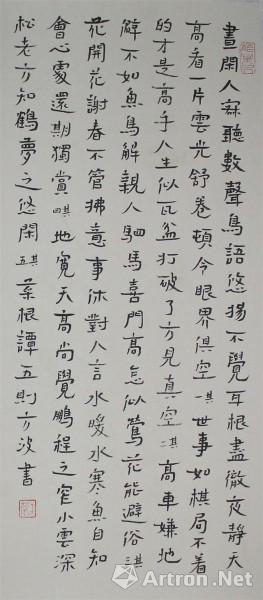 晝閑人寂聽數聲鳥語悠揚不覺耳根盡徹夜靜天
高看一片雲光舒卷頓令眼界俱空其一世事如棋局不着
的才是高手人生似瓦盆打破了方見真空其二高車嫌地
僻不如魚鳥解親人駟馬喜門高怎似鶯花能避俗其三
花開花謝春不管拂意事休對人言水暖水寒魚自知
會心處還期獨賞其四地寬天高尚覺鵬程之窄小雲深
松老方知鶴夢之悠閑其五菜根譚五則方波書
Artron.Net